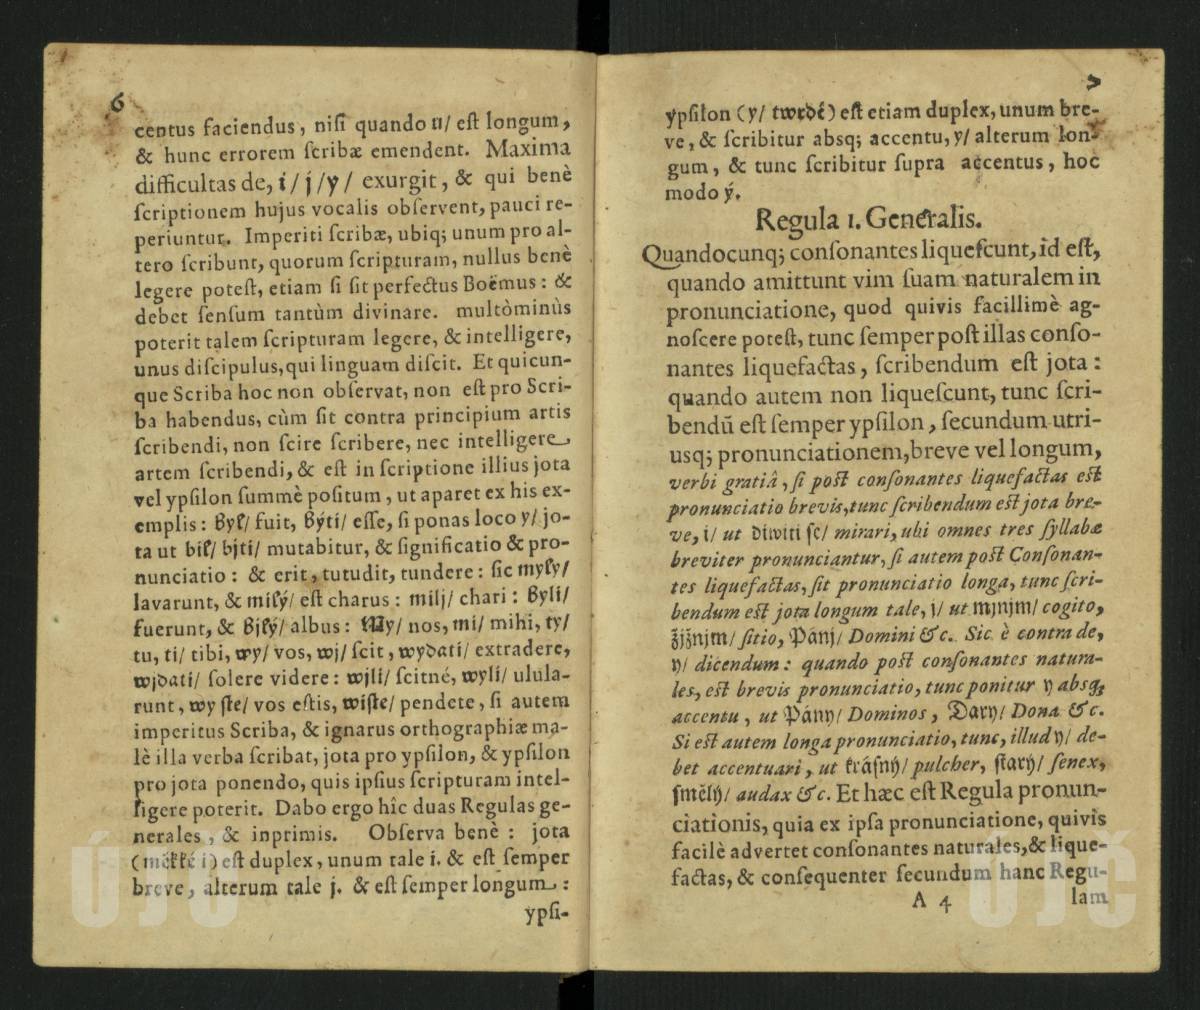 6
centus faciendus, niſi quando ů/ eſt longum,
& hunc errorem ſcribæ emendent. Maxima
difficultas de, i/ j /y/ exurgit, & qui benè
ſcriptionem hujus vocalis obſervent, pauci re-
periuntur. Imperiti ſcribæ, ubiq; unum pro al-
tero ſcribunt, quorum ſcripturam, nullus benè
legere poteſt, etiam ſi ſit perfectus Boëmus: &
debet ſenſum tantùm divinare. multòminùs
poterit talem ſcripturam legere, & intelligere,
unus diſcipulus, qui linguam diſcit. Et quicun-
que Scriba hoc non obſervat, non eſt pro Scri-
ba habendus, cùm ſit contra principium artis
ſcribendi, non ſcire ſcribere, nec intelligere
artem ſcribendi, & eſt in ſcriptione illius jota
vel ypſilon ſummè poſitum, ut aparet ex his ex-
emplis: Byl/ fuit, Býti/ eſſe, ſi ponas loco y/ jo-
ta ut bil/ bjti/ mutabitur, & ſignificatio & pro-
nunciatio: & erit, tutudit, tundere: ſic myly/
lavarunt, & milý/ eſt charus: milj/ chari: Byli/
fuerunt, & Bjlý/ albus: My/ nos, mi/ mihi, ty/
tu, ti/ tibi, wy/ vos, wj/ ſcit, wydati/ extradere,
wjdati/ ſolere videre: wjli/ ſcitné, wyli/ ulula-
runt, wy ſte/ vos eſtis, wiſte/ pendete, ſi autem
imperitus Scriba, & ignarus orthographiæ ma-
lè illa verba ſcribat, jota pro ypſilon, & ypſilon
pro jota ponendo, quis ipſius ſcripturam intel-
ligere poterit. Dabo ergo hîc duas Regulas ge-
nerales, & inprimis. Obſerva benè: jota
(měkké i) eſt duplex, unum tale i. & eſt ſemper
breve, alterum tale j. & eſt ſemper longum:
ypſi-
7
ypſilon (y/ twrdé) eſt etiam duplex, unum bre-
ve, & ſcribitur absq; accentu, y/ alterum lon-
gum, & tunc ſcribitur ſupra accentus, hoc
modo ý.
Regula 1. Generalis.
Quandocunq; conſonantes liqueſcunt, id eſt,
quando amittunt vim ſuam naturalem in
pronunciatione, quod quivis facillimè ag-
noſcere poteſt, tunc ſemper poſt illas conſo-
nantes liquefactas, ſcribendum eſt jota:
quando autem non liqueſcunt, tunc ſcri-
bendū eſt ſemper ypſilon, ſecundum utri-
usq; pronunciationem, breve vel longum,
verbi gratiâ, ſi poſt conſonantes liquefactas eſt
pronunciatio brevis, tunc ſcribendum eſt jota bre-
ve, i/ ut diwiti ſe/ mirari, ubi omnes tres ſyllabæ
breviter pronunciantur, ſi autem poſt Conſonan-
tes liquefactas, ſit pronunciatio longa, tunc ſcri-
bendum eſt jota longum tale, j/ ut mjnjm/ cogito,
žjžnjm/ ſitio, Pánj/ Domini &c. Sic è contra de,
y/ dicendum: quando poſt conſonantes natura-
les, eſt brevis pronunciatio, tunc ponitur y absq;
accentu, ut Pány/ Dominos, Dary/ Dona &c.
Si eſt autem longa pronunciatio, tunc, illud ý/ de-
bet accentuari, ut kráſný/ pulcher, ſtarý/ ſenex,
ſmělý/ audax &c. Et hæc eſt Regula pronun-
ciationis, quia ex ipſa pronunciatione, quivis
facilè advertet conſonantes naturales, & lique-
factas, & conſequenter ſecundum hanc Regu-
A 4 lam
ÚJČ ÚJČ